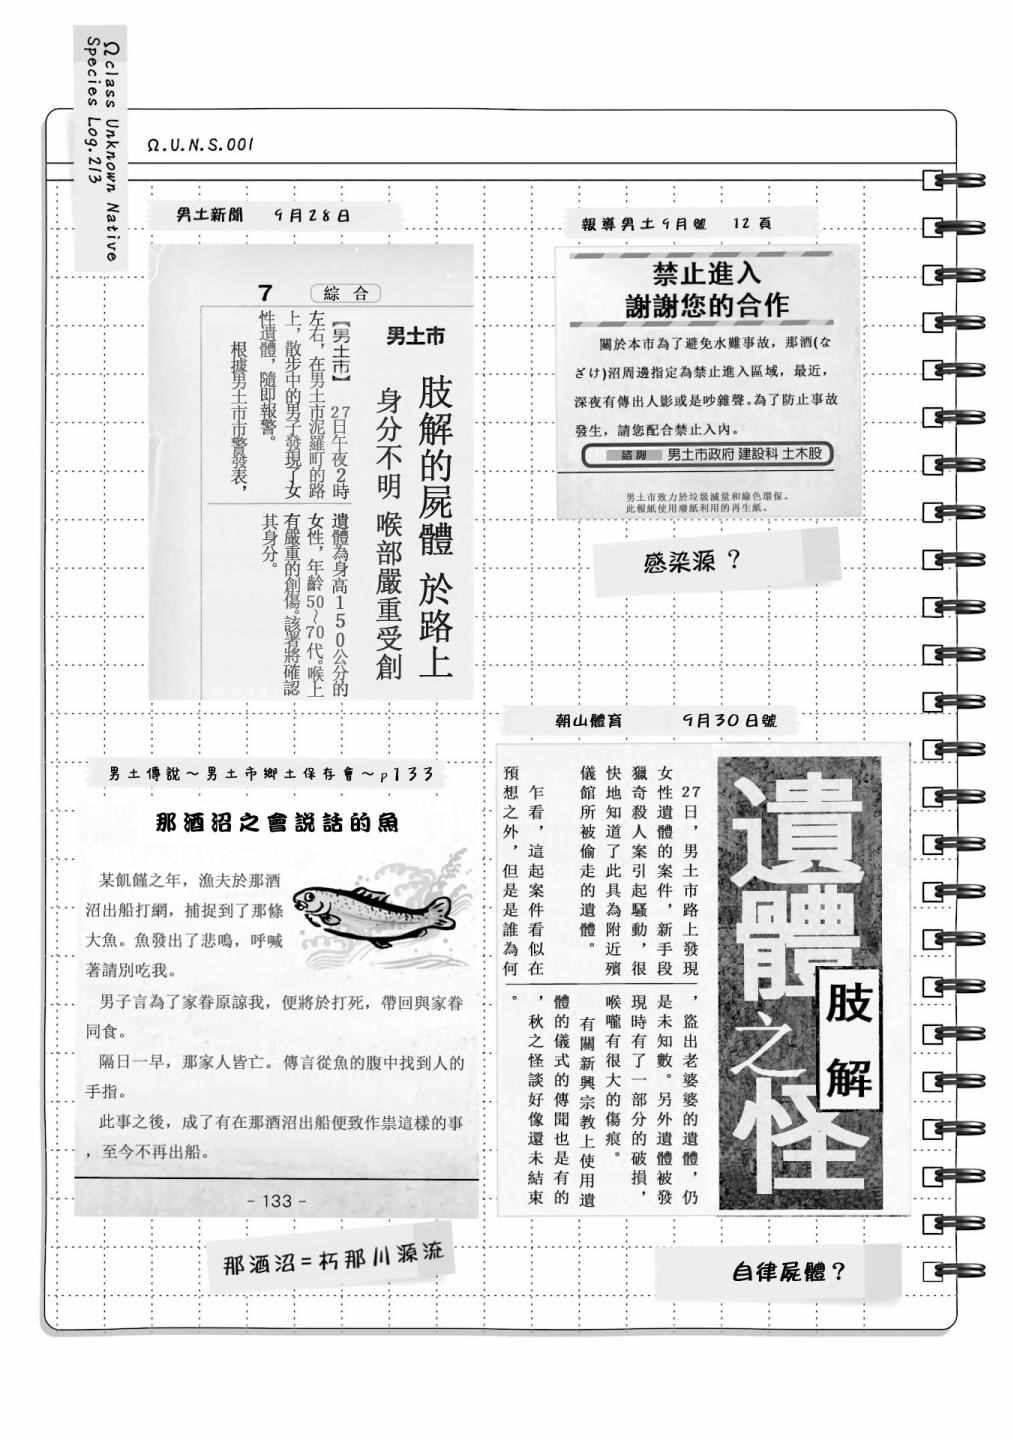 Ωclass Unknown Native
Species Log.213
Ω.U.N.S.001
男土新聞　9月28日
7
綜合
男土市
肢解的屍體 於路上
身分不明 喉部嚴重受創
【男土市】 27日午夜2時
左右，在男土市泥羅町的路
上，散步中的男子發現了女
性遺體，隨即報警。
根據男土市市警發表，
遺體為身高150公分的
女性，年齡50～70代。喉上
有嚴重的創傷。該署將確認
其身分。
報導男土9月號　12頁
禁止進入
謝謝您的合作
關於本市為了避免水難事故，那酒(な
ざけ)沼周邊指定為禁止進入區域，最近，
深夜有傳出人影或是吵雜聲。為了防止事故
發生，請您配合禁止入內。
諮詢 男土市政府 建設科 土木股
男土市致力於垃圾減量和綠色環保。
此報紙使用廢紙利用的再生紙。
感染源？
男土傳說～男土市鄉土保存會～p133
那酒沼之會説話的魚
某飢饉之年，漁夫於那酒
沼出船打網，捕捉到了那條
大魚。魚發出了悲鳴，呼喊
著請別吃我。
男子言為了家眷原諒我，便將於打死，帶回與家眷
同食。
隔日一早，那家人皆亡。傳言從魚的腹中找到人的
手指。
此事之後，成了有在那酒沼出船便致作祟這樣的事
，至今不再出船。
- 133 -
那酒沼=朽那川源流
朝山體育　9月30日號
遺體之怪
肢解
27日，男土市路上發現
女性遺體的案件，新手段
獵奇殺人案引起騷動，很
快地知道了此具為附近殯
儀館所被偷走的遺體。
乍看，這起案件看似在
預想之外，但是是誰為何
，盜出老婆婆的遺體，仍
是未知數。另外遺體被發
現時有了一部分的破損，
喉嚨有很大的傷痕。
有關新興宗教上使用遺
體的儀式的傳聞也是有的
，秋之怪談好像還未結束
。
自律屍體？